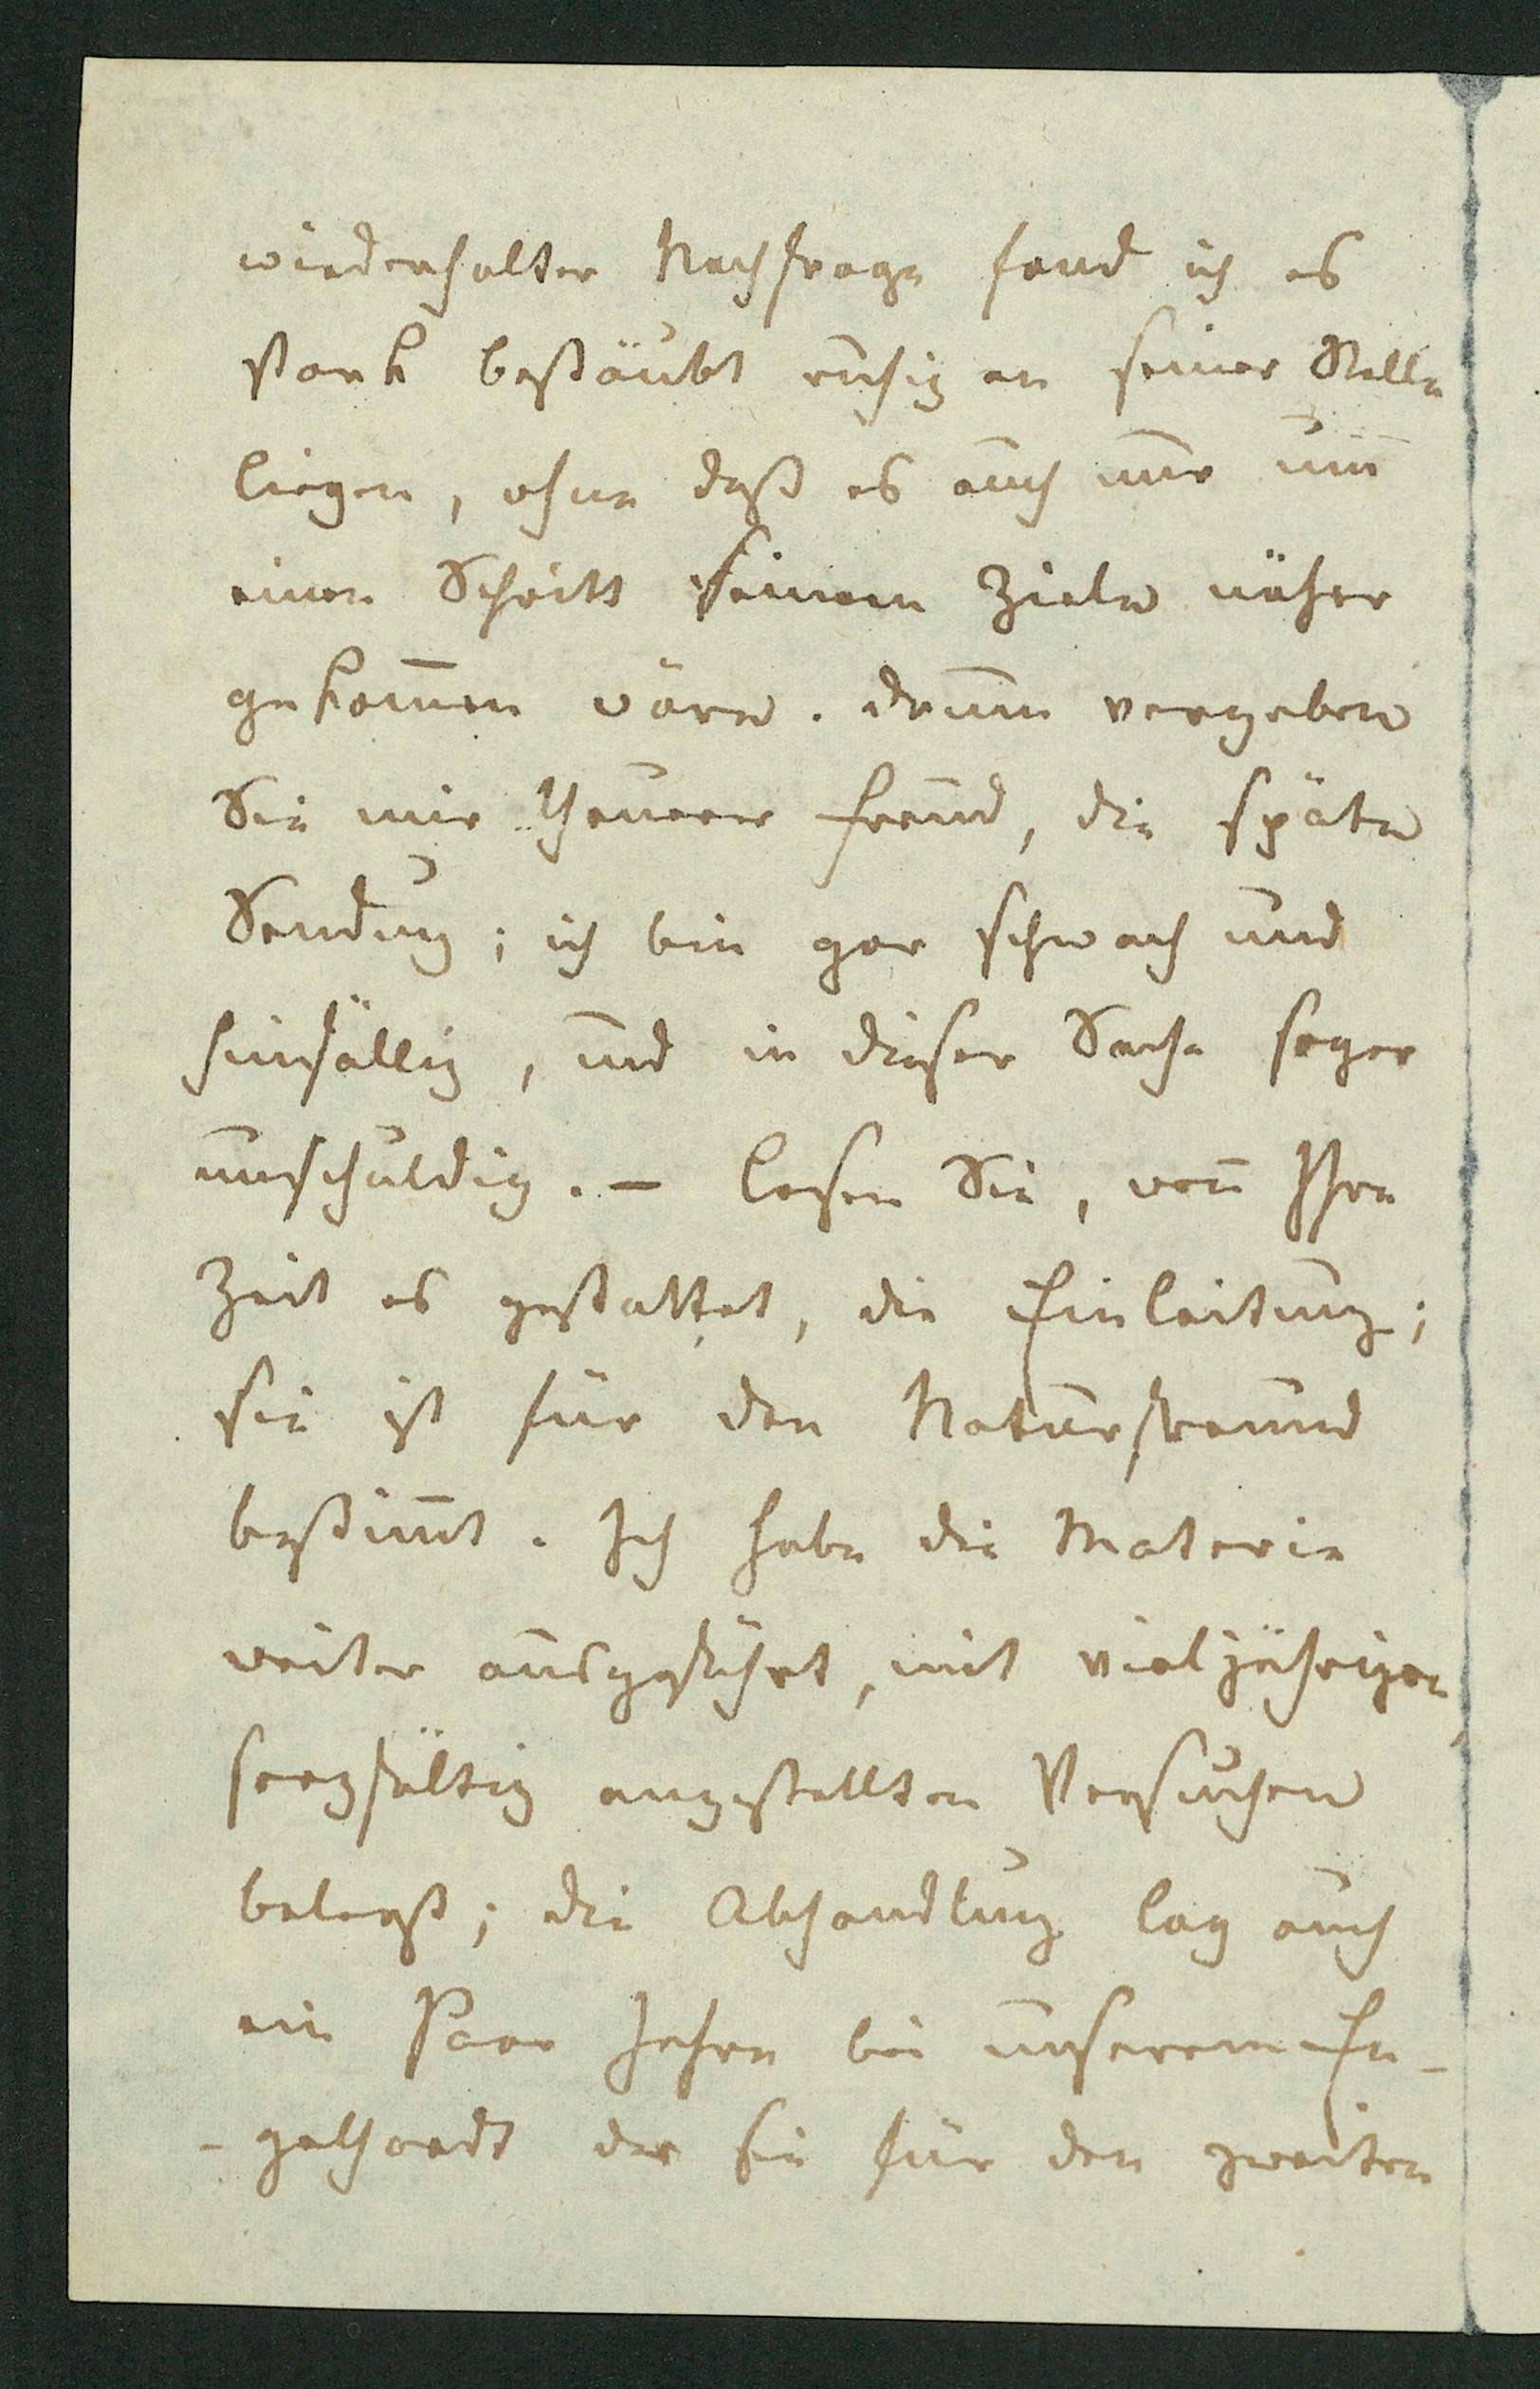 wiederholter Nachfrage fand ich es
stark bestäubt ruhig an seiner Stelle
liegen, ohne daß es auch nur um
einen Schritt seinem Ziele näher
gekom̅en wäre. Drum vergeben
Sie mir theurer Freund, die späte
Sendung; ich bin gar schwach und
hinfällig, und in dieser Sache sogar
unschuldig. – Lesen Sie, wen̅ Ihre
Zeit es gestattet, die Einleitung;
sie ist für den Naturfreund
bestim̅t. Ich habe die Materie
weiter ausgeführt, mit vieljährigen,
sorgfältig angestellten Versuchen
belegt; die Abhandlung lag auch
ein Paar Jahre bei unserem En-
-gelhardt der sie für den zweiten